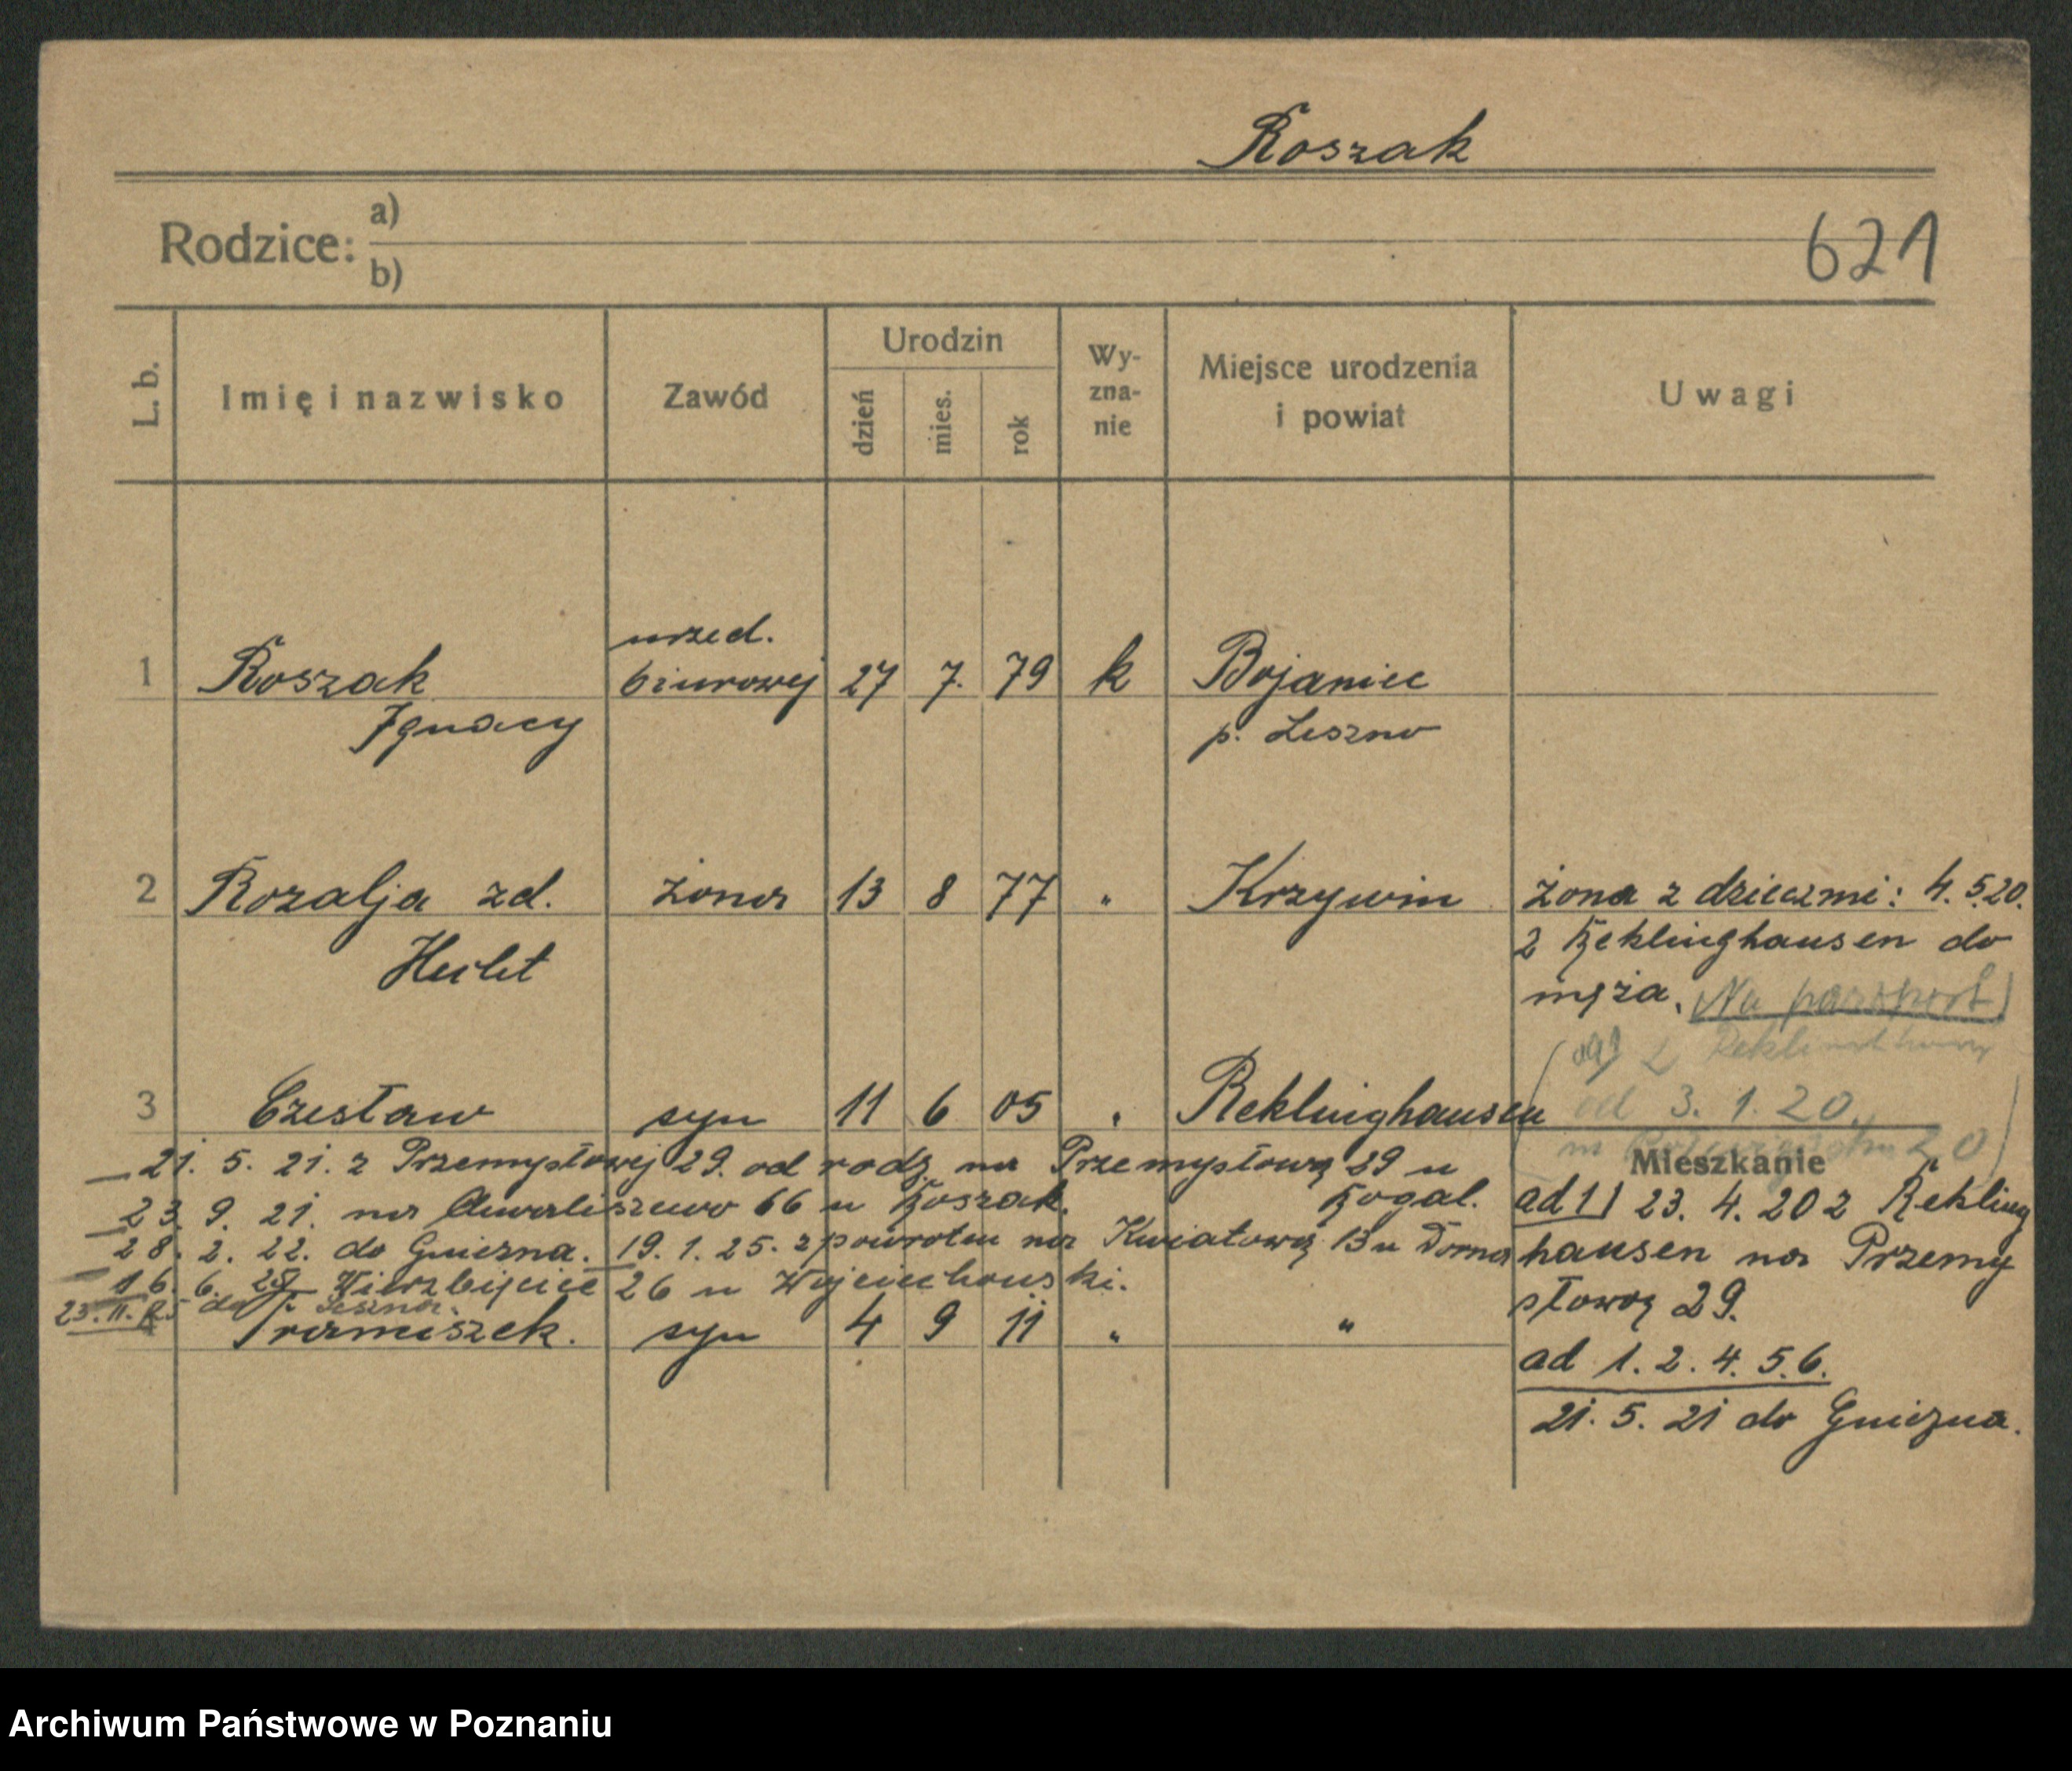 Roszak
Rodzice: a)
b)
621
L. b.
Imię i nazwisko
Zawód
Urodzin
dzień
mies.
rok
Wy-
zna-
nie
Miejsce urodzenia
i powiat
Uwagi
urzed.
1 Roszak biurowej 27 7. 79 k Bojaniec
Ignacy p. Leszno
2 Rozalja zd. żona 13 8 77 " Krzywin żona z dziećmi: 4. 5.20.
z Reklinghausen do
męża. Na paszport
3 Czesław syn 11 6 05 " Reklinghausen od 3. 1. 20.
21. 5. 21. z Przemysłowej 29. od rodz na Przemysłową 29 u
Rogal.
23. 9. 21. na Chwaliszewo 66 u Roszak.
28. 2. 22. do Gniezna. 19. 1. 25. z powrotem na Kwiatową 13 u Doma
16. 6. 25 Wierzbięcice 26 u Wojciechowski.
23. 11. 25 do Leszna.
Franciszek. syn 4 9 11 " "
Mieszkanie
ad 1) 23. 4. 20 z Rekling
hausen na Przemy
słową 29.
ad 1. 2. 4. 5. 6.
21. 5. 21 do Gniezna.
Archiwum Państwowe w Poznaniu